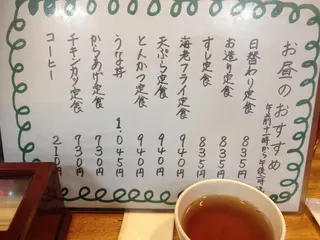 お昼のおすすめ
午前十一時から午後
日替わり定食 835円
お造り定食 835円
すし定食 835円
海老フライ定食 940円
天ぷら定食 940円
とんかつ定食 940円
うな丼 1.045円
からあげ定食 730円
チキンカツ定食 730円
コーヒー 210円